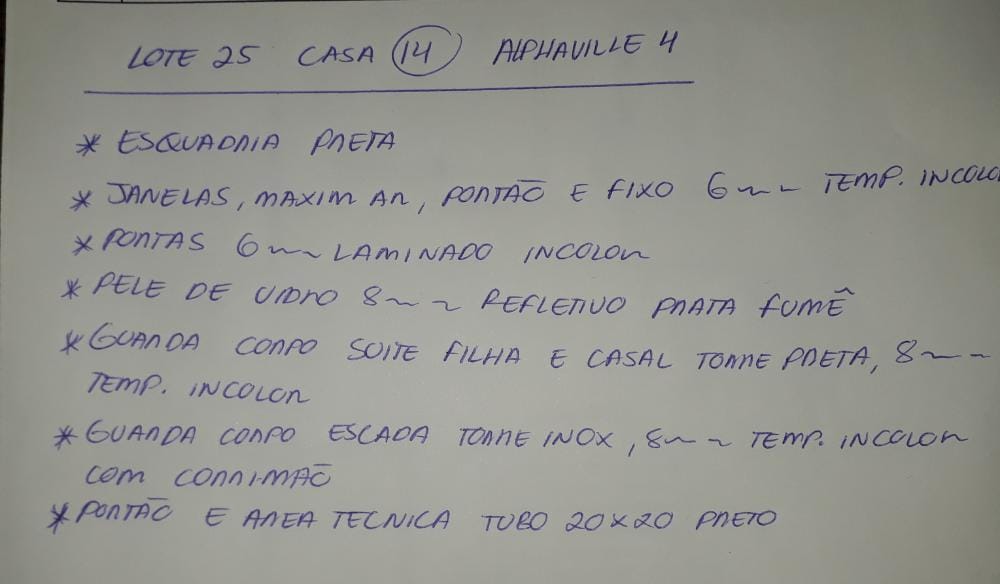 LOTE 25 CASA 14 ALPHAVILLE 4
* ESQUADRIA PRETA
* JANELAS, MAXIM AR, PORTÃO E FIXO 6mm TEMP. INCOLOR
* PORTAS 6mm LAMINADO INCOLOR
* PELE DE VIDRO 8mm REFLETIVO PRATA FUMÊ
* GUARDA CORPO SUITE FILHA E CASAL TORRE PRETA, 8mm
TEMP. INCOLOR
* GUARDA CORPO ESCADA TORRE INOX, 8mm TEMP. INCOLOR
COM CORRIMÃO
* PORTÃO E AREA TECNICA TUBO 20X20 PRETO